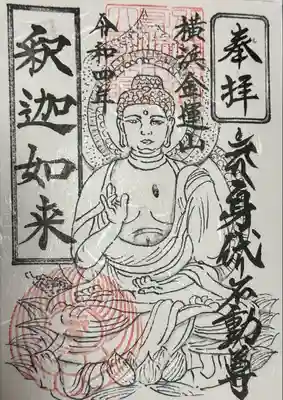 奉拝
厄身代り不動尊
横浜金運山
令和四年
釈迦如来